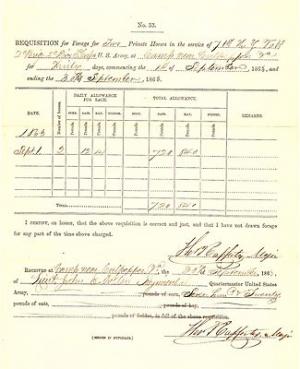 No. 33.
REQUISITION for Forage for Two Private Horses in the service of 71st N. Y. Vols
2 Brig 2 Div 3 Corps U. S. Army, at Camp near Culpeper Va
for Thirty days, commencing the 1st of September, 1863, and
ending the 30th September, 1863.
DATE. Number of horses. DAILY ALLOWANCE FOR EACH. TOTAL ALLOWANCE. REMARKS.
1863
Sept. 1 2 12 14 720 840
Total 720 840
I CERTIFY, on honor, that the above requisition is correct and just, and that I have not drawn forage
for any part of the time above charged.
Major
RECEIVED at Camp near Culpeper Va, the 30th September, 186
of Lieut John Quartermaster United States
Army, pounds of corn, Seven Hund & Twenty
pounds of oats, pounds of hay,
pounds of fodder, in full of the above requisition.
Major
[SIGNED IN DUPLICATE.]